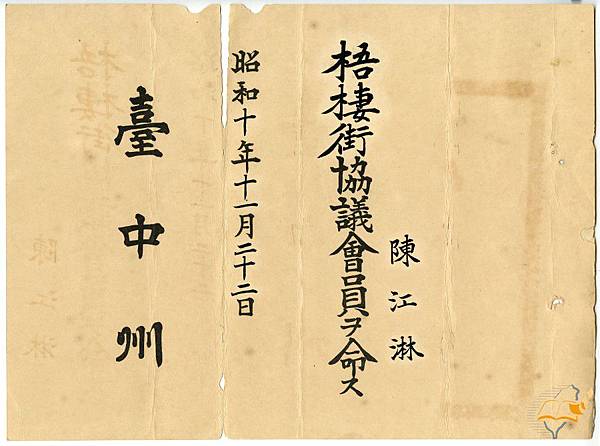 陳江淋
梧棲街協議會員ヲ命ス
昭和十年十一月二十二日
臺中州